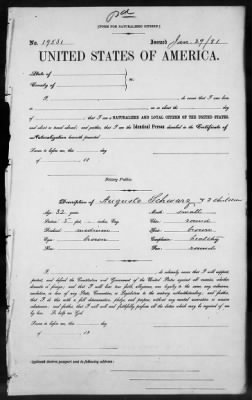 pd
[FORM FOR NATURALIZED CITIZEN.]
No. 19531 Issued Jan. 29/81
UNITED STATES OF AMERICA.
State of
County of } ss.
I, do swear that I was born
in on or about the day
of ; that I am a NATURALIZED AND LOYAL CITIZEN OF THE UNITED STATES,
and about to travel abroad; and further, that I am the Identical Person described in the Certificate of
Naturalization herewith presented.
Sworn to before me, this day
of 18
Notary Public.
Description of Auguste Schwarz & 2 children
Age: 32 years Mouth: small
Stature: 5 feet inches, Eng. Chin: round
Forehead: medium Hair: brown
Eyes: brown Complexion: healthy
Nose: Face: round
I, do solemnly swear that I will support,
protect, and defend the Constitution and Government of the United States against all enemies, whether
domestic or foreign; and that I will bear true faith, allegiance, and loyalty to the same, any ordinance,
resolution, or law of any State, Convention, or Legislature to the contrary notwithstanding; and further,
that I do this with a full determination, pledge, and purpose, without any mental reservation or evasion
whatsoever; and further, that I will well and faithfully perform all the duties which may be required of me
by law. So help me God.
Sworn to before me, this day
of 18
Applicant desires passport sent to following address: